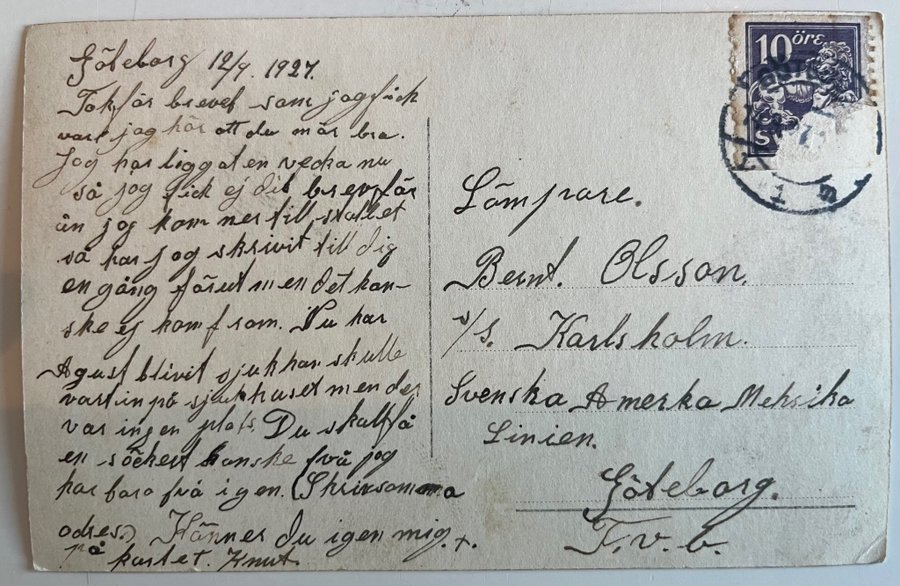 Göteborg 12/9. 1927.
Tak för brevet som jag fick
vart jag hör att du mår bra.
Jag har liggat en vecka nu
så jag fick ej dit brev för
än jag kom ner till stallet
så har jag skrivit till dig
en gång förut men det kan-
ske ej kom fram. Nu har
Agust blivit sjuk han skulle
vart in på sjukhuset men der
var ingen plats Du skall få
en söckert kanske två jag
har bara två igen. (Skriv samma
adres.) Känner du igen mig.
på kortet. Knut.
10 öre
Lämpare.
Bernt. Olsson.
s/s. Karlsholm.
Svenska Amerka Mehsika
Linien.
Göteborg.
F.v.b.